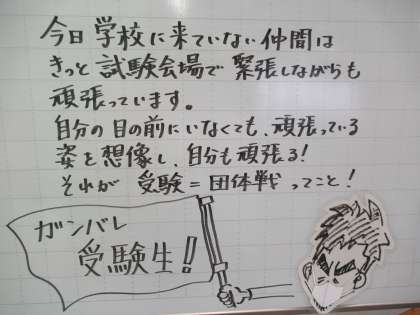 今日学校に来ていない仲間は
きっと試験会場で緊張しながらも
頑張っています。
自分の目の前にいなくても、頑張っている
姿を想像し、自分も頑張る!
それが受験=団体戦ってこと!
ガンバレ
受験生!